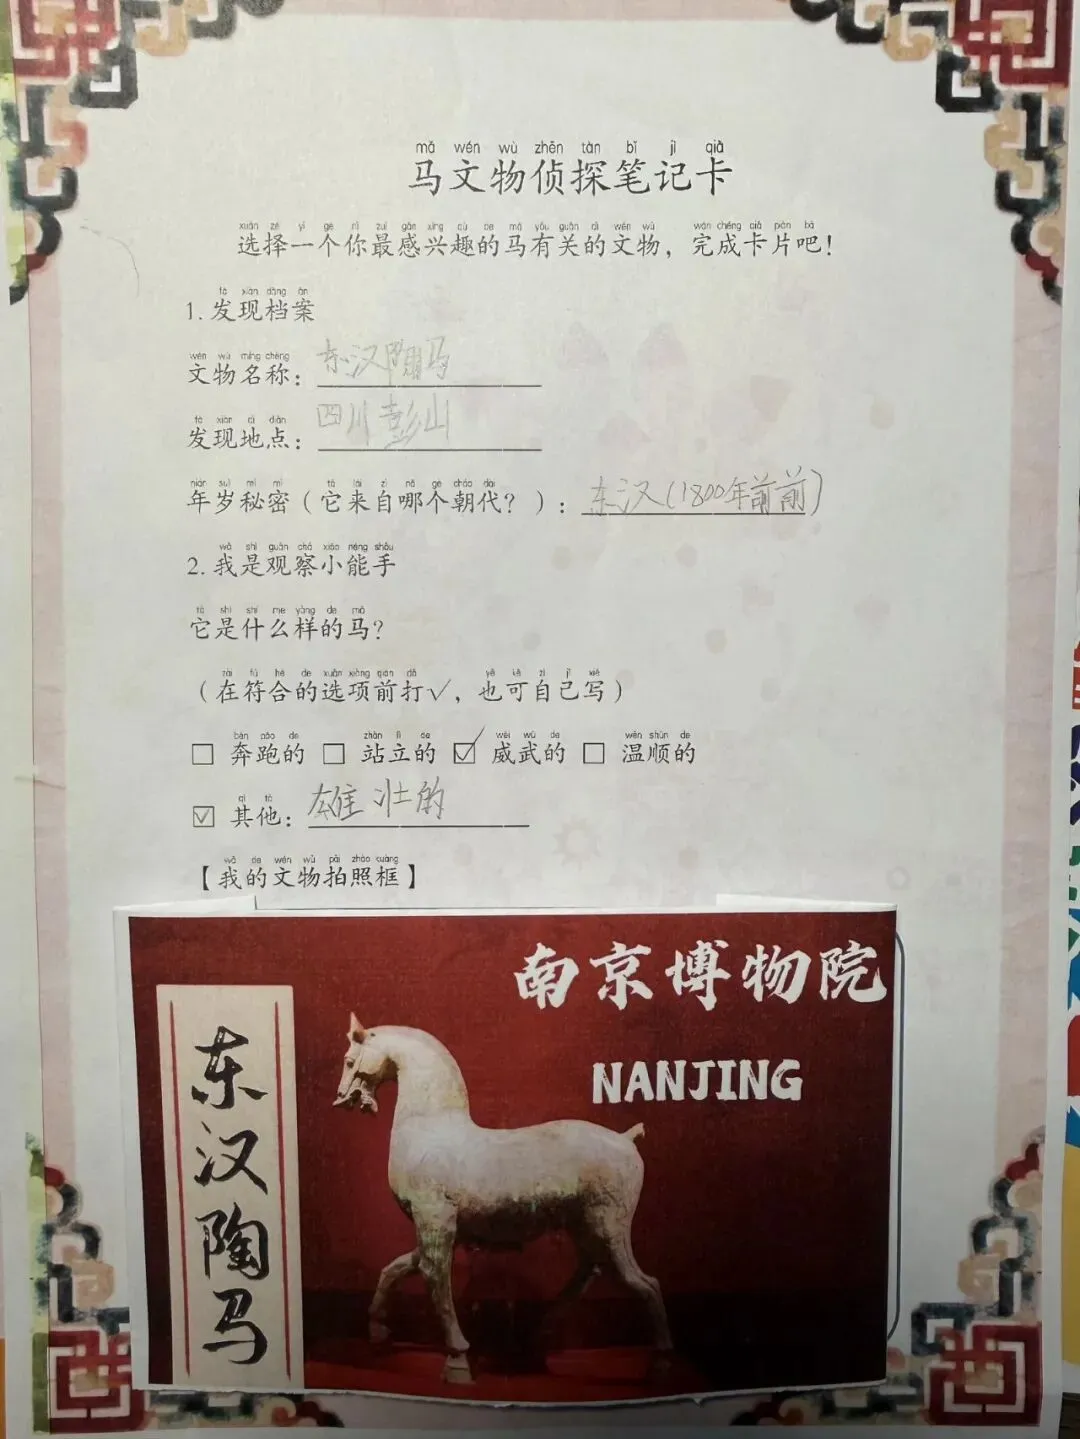 mǎ wén wù zhēn tàn bǐ jì qiǎ
马文物侦探笔记卡
xuǎn zé yí gè nǐ zuì gǎn xìng qù de mǎ yǒu guān di wén wù wán chéng qiǎ piàn bā
选择一个你最感兴趣的马有关的文物，完成卡片吧！
fā xiàn dàng àn
1. 发现档案
wén wù míng chēng
文物名称：东汉陶马
fā xiàn dì diǎn
发现地点：四川彭山
nián suì mì mì tā lái zì nǎ gè cháo dài
年岁秘密（它来自哪个朝代？）：东汉(1800年前前)
wǒ shì guān chá xiǎo néng shǒu
2. 我是观察小能手
tā shì shí me yàng de mǎ
它是什么样的马？
zài fú hé de xuǎn xiàng qián dǎ yě kě zì jǐ xiě
（在符合的选项前打√，也可自己写）
bēn pǎo de zhàn lì de wēi wǔ de wēn shùn de
□ 奔跑的 □ 站立的 ☑ 威武的 □ 温顺的
qí tā
☑ 其他：雄壮的
wǒ de wén wù pāi zhào kuàng
【我的文物拍照框】
南京博物院
NANJING
东汉陶马